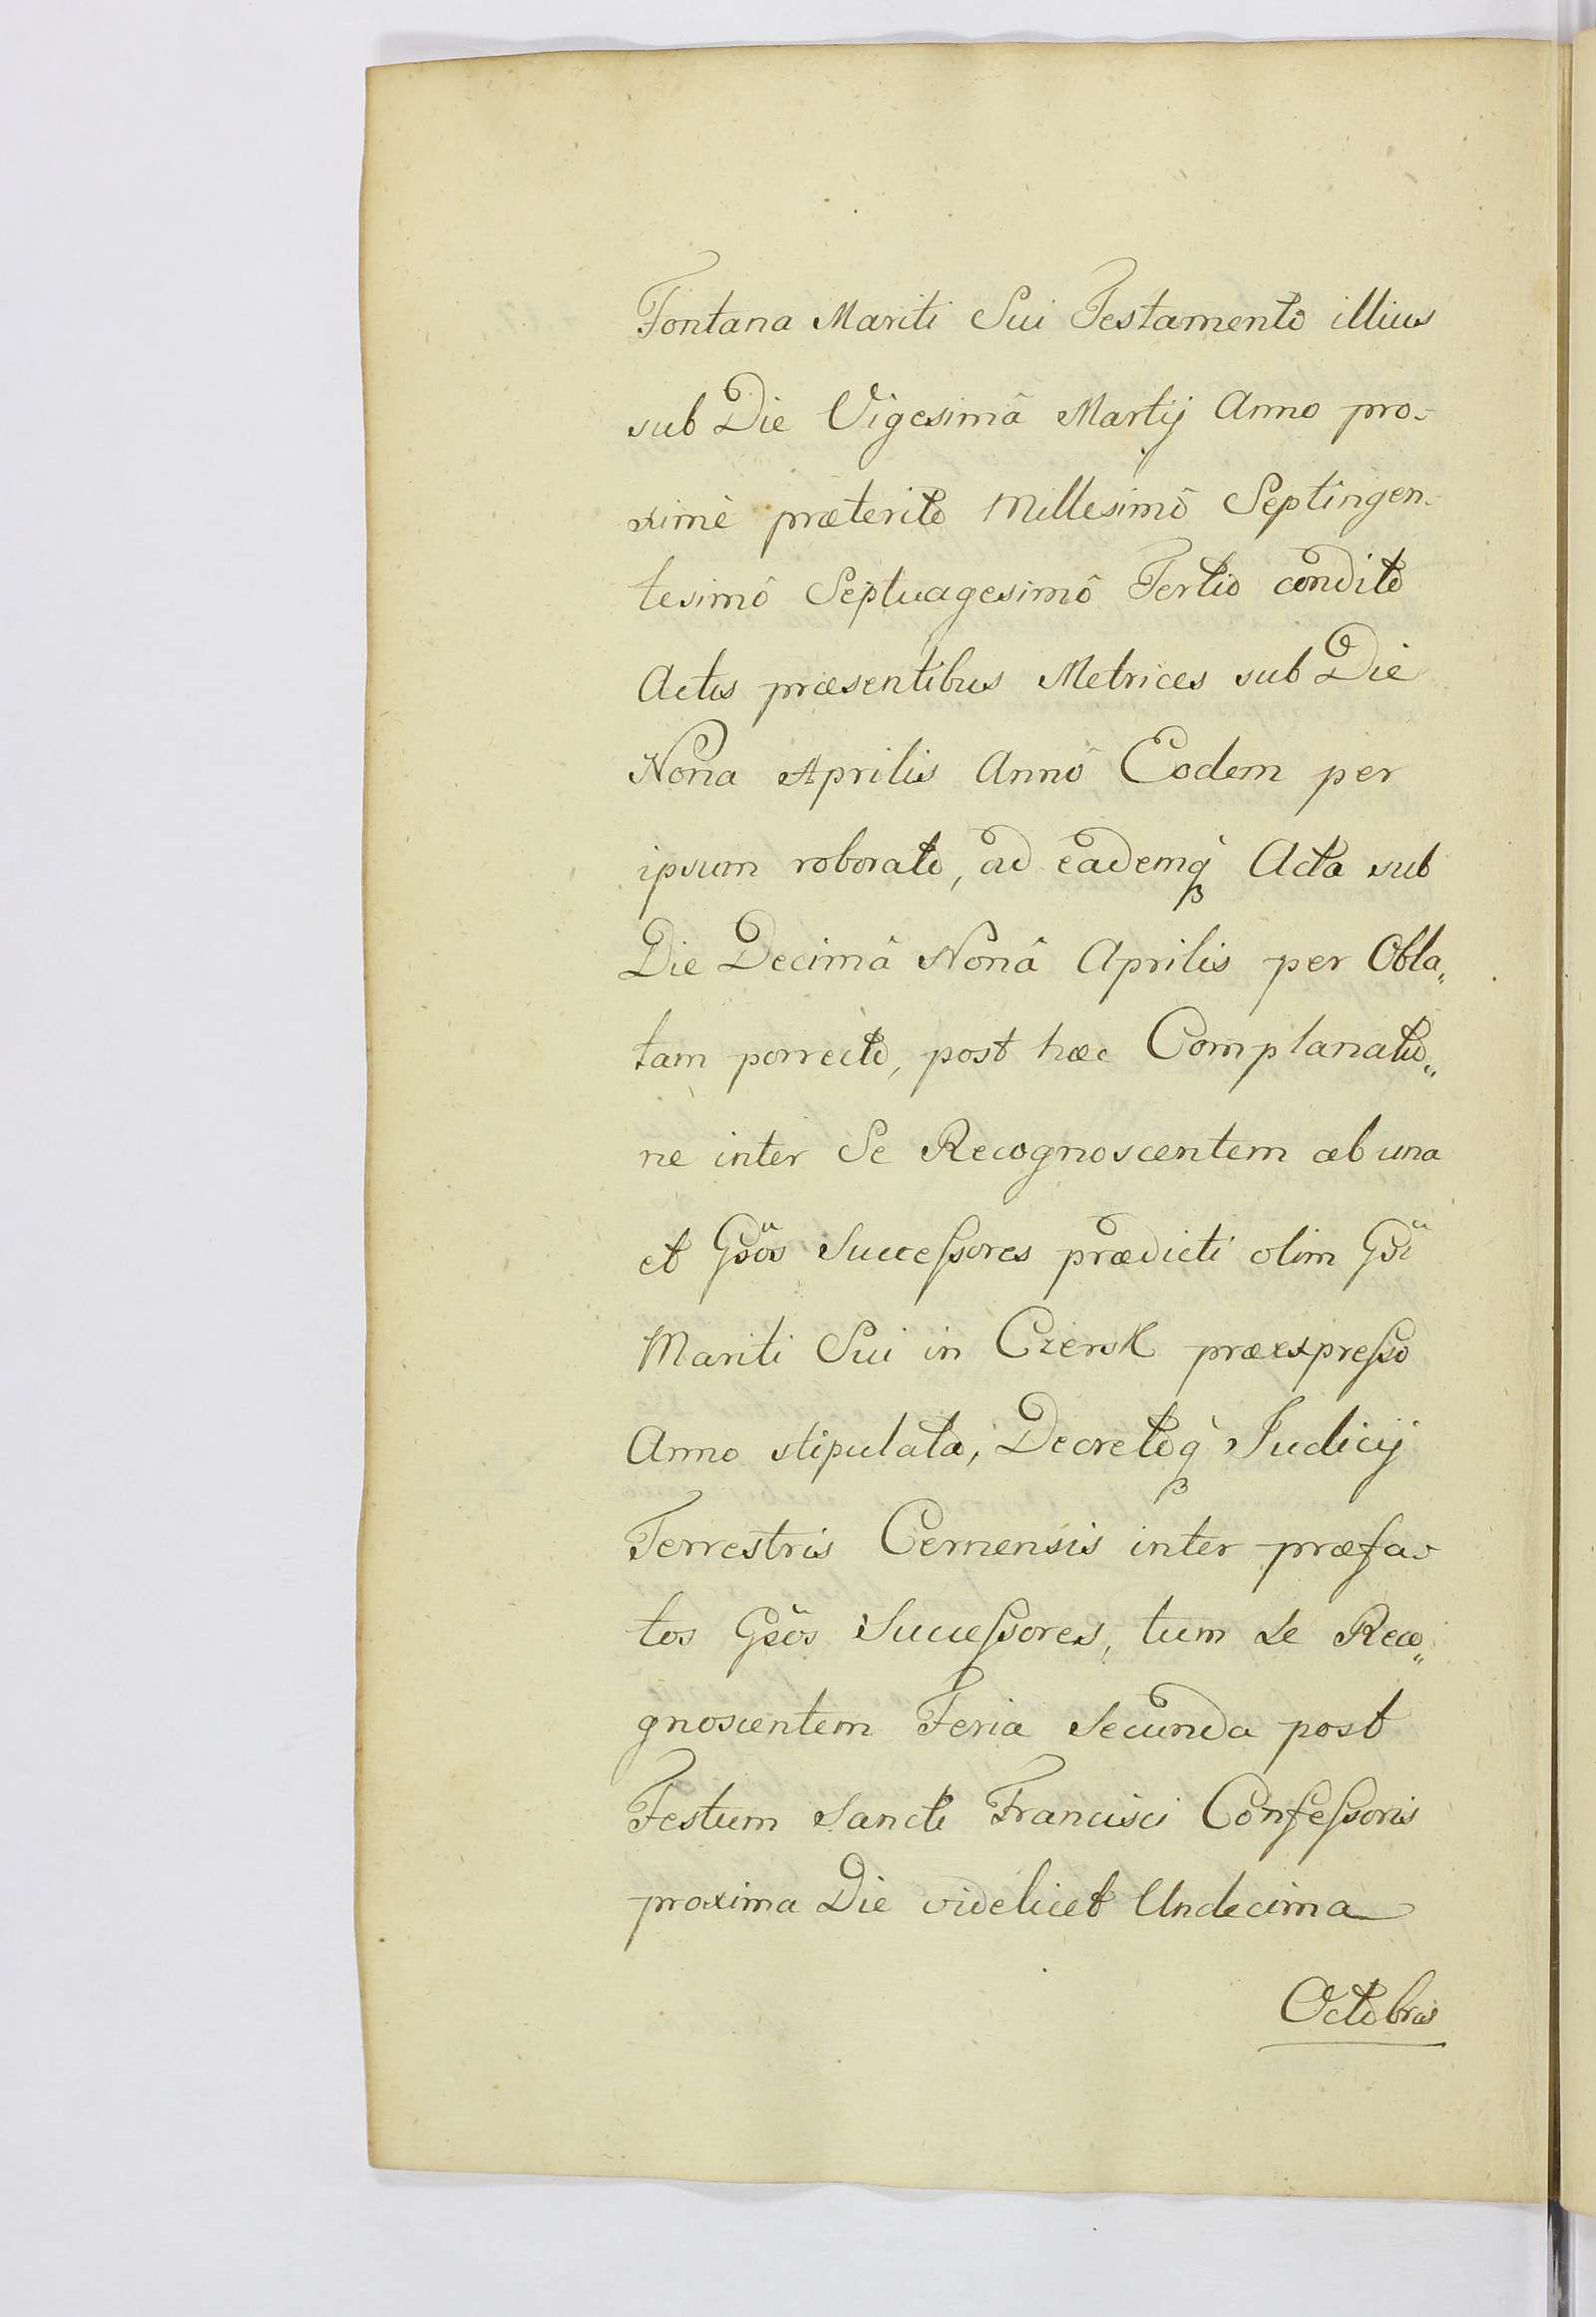 Fontana Mariti Sui Testamento illius
sub Die Vigesimâ Martij Anno pro-
ximè præterito Millesimô Septingen-
tesimô Septuagesimô Tertio condito
Actis præsentibus Metrices sub Die
Nona Aprilis Annô Eodem per
ipsum roborato, ad eademq́ Acta sub
Die Decimâ Nonâ Aprilis per Obla„
tam porrecto, post hæc Complanatio„
ne inter Se Recognoscentem ab una
et Gsos Successores prædicti olim Gsi
Mariti Sui in Czersk præexpresso
Anno stipulata, Decretoq́ Judicij
Terrestris Cernensis inter præfa-
tos Gsos Successores, tum se Reco„
gnoscentem Feria Secunda post
Festum Sancti Francisci Confessoris
proxima Die videlicet Undecima
Octobris